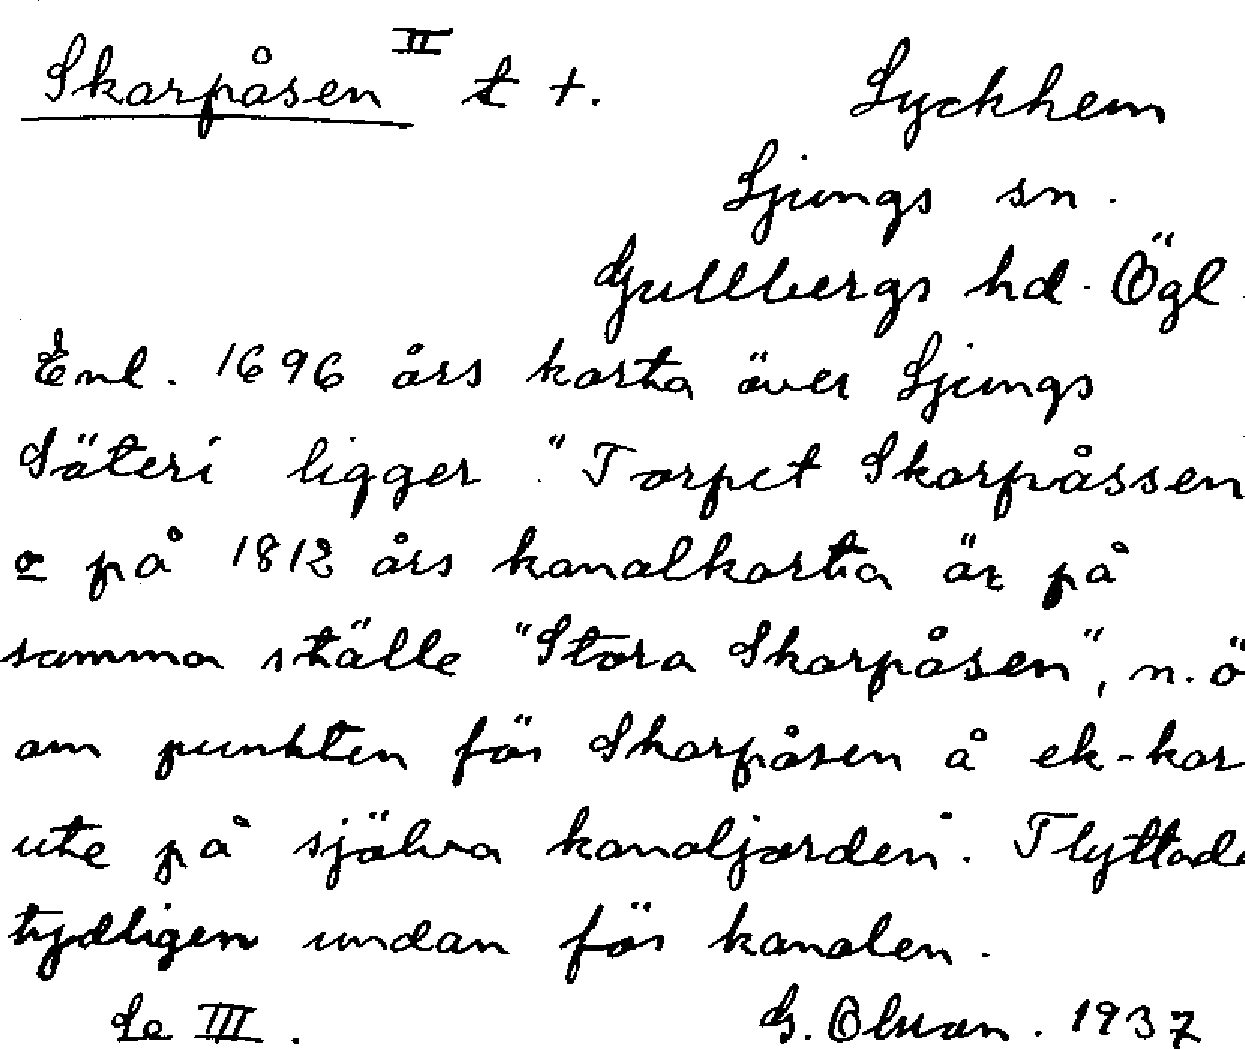 Skarpåsen II t +.
Lyckhem
Ljungs sn.
Gullbergs hd. Ögl.
Enl. 1696 års karta över Ljungs
Säteri ligger "Torpet Skarpåssen
o på 1812 års kanalkarta är på
samma ställe "Stora Skarpåsen", n.ö
om punkten för Skarpåsen å ek-kar
ute på själva kanaljorden. Flyttade
tydligen undan för kanalen.
Se III.
G. Olsson. 1937